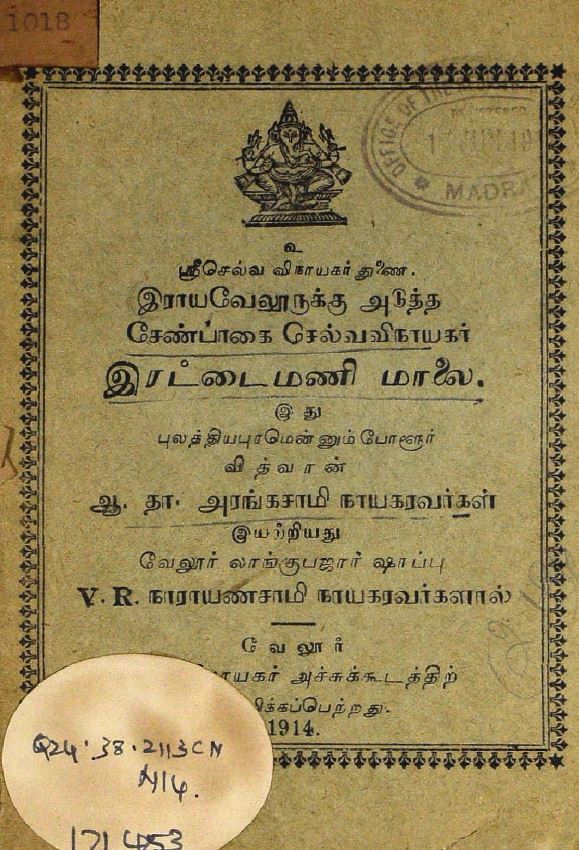 1018
OFFICE OF THE
REGISTERED
MADRA
உ
ஸ்ரீசெல்வ விநாயகர் துணை.
இராயவேலூருக்கு அடுத்த
சேண்பாகை செல்வவிநாயகர்
இரட்டைமணி மாலை.
இது
புலத்தியபுரமென்னும்போளூர்
வித்வான்
ஆ. தா. அரங்கசாமி நாயகரவர்கள்
இயற்றியது
வேலூர் லாங்குபஜார் ஷாப்பு
V. R. நாராயணசாமி நாயகரவர்களால்
வேலூர்
நாயகர் அச்சுக்கூடத்திற்
பிக்கப்பெற்றது.
1914.
Q24.38.2113CN
N14.
171453